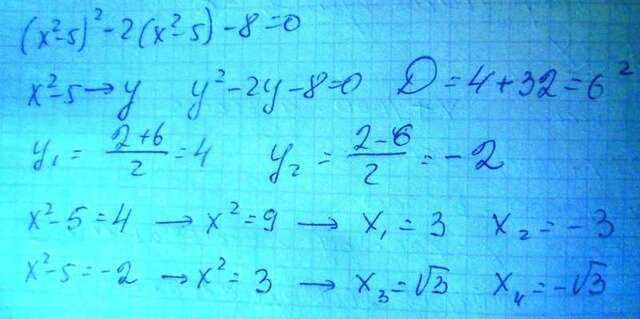 (x²-5)²-2(x²-5)-8=0
x²-5→y y²-2y-8=0 D=4+32=6²
y₁=(2+6)/2=4 y₂=(2-6)/2=-2
x²-5=4 → x²=9 → x₁=3 x₂=-3
x²-5=-2 → x²=3 → x₃=√3 x₄=-√3